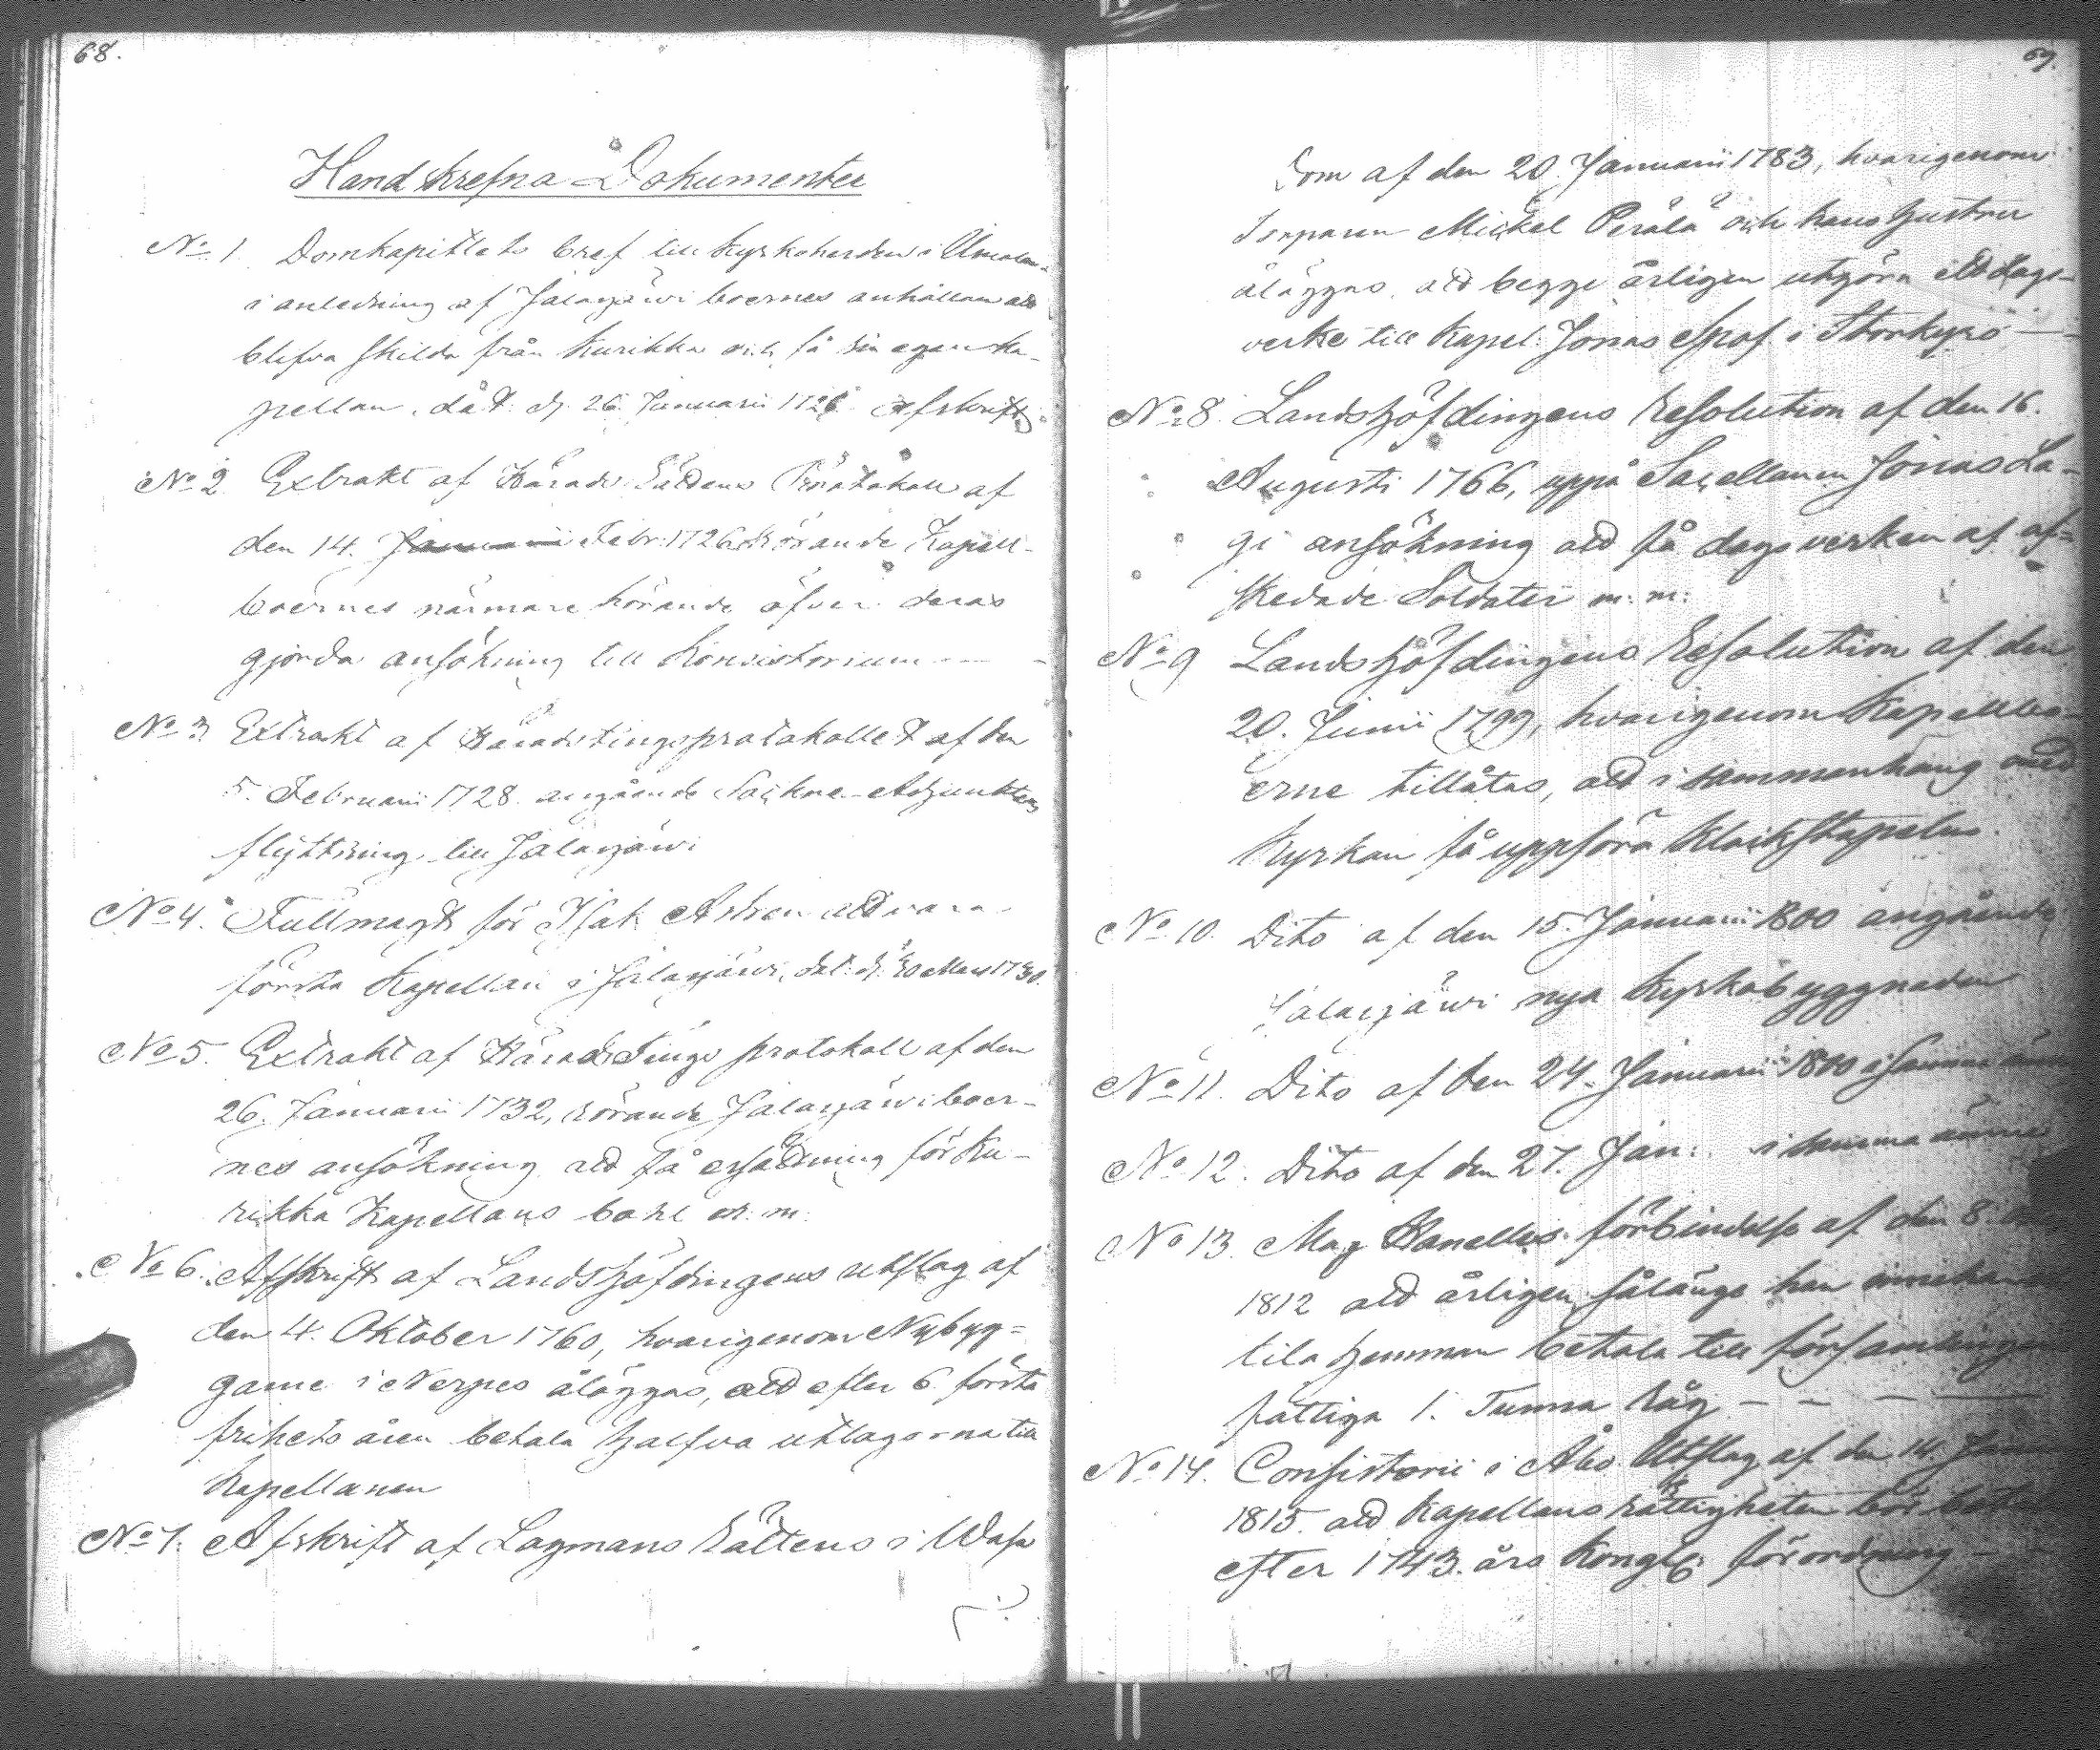 68.
Handskrefna Dokumenter
No 1. Domkapitlets bref till Kyrkoherden i Ilmola
i anledning af Jalasjäwiboernes anhållan att
blifva skilda från Kurikka och få sin egen Ka-
pellan, dåt. d. 26. Januarii 1726. Afskrift
No 2. Extrakt af Härads Rättens Protokoll af
den 14. Januarii Febr: 1726. rörande Kapell-
boernes närmare hörande öfver deras
gjorda ansökning till Konsistorium
No 3. Extrakt af Häradstingsprotokollet af den
5. Februarii 1728. angående Sockne-Adjunktens
flyttning till Jalasjäwi
No 4. Fullmagt för Isak att vara
första Kapellan i Jalasjäwi, dat. d. 30 Mars 1730.
No 5. Extrakt af Härads Tings protokoll af den
26. Januarii 1732, rörande Jalasjäwiboer-
nes ansökning att få ersättning för Ku-
rikka Kapellans bohl m. m.
No 6. Afskrift af Landshöfdingens utslag af
den 4. Oktober 1760, hvarigenom Nybyg-
garne i Nerpes åläggas, att efter 6 första
frihets åren betala halfva utlagorna till
Kapellanen
No 7. Afskrift af Lagmans Rättens i Wasa
69.
Dom af den 20. Januarii 1783, hvarigenom
Torparen Mickel Perälä och hans hustru
åläggas, att begge årligen utgöra ett dags-
verke till Kapel: Jonas Aspof i Storkyrö
No 8. Landshöfdingens Resolution af den 16.
Augusti 1766, uppå Sacellanen Jonas La-
gi ansökning att få dagsverken af af-
skedade Soldater m: m:
No 9 Landshöfdingens Resolution af den
20. Junii 1799, hvarigenom Kapellbo-
erne tillåtas, att i sammanhang med
Kyrkan få uppföra Klockstapeln
No 10. Dito af den 15. Januarii 1800 angående
Jalasjäwi nya Kyrkobyggnaden
No 11. Dito af den 24. Januarii 1800 i samma ämne
No 12. Dito af den 27. Jan: i samma ämne
No 13. Mag Hanelles förbindelse af den 8.
1812 att årligen, sålänge han innehar
tila hemman betala till församlingens
fattiga 1. Tunna Råg
No 14. Consistorii i Åbo Utslag af den 14.
1815. att Kapellans rättigheten bör
efter 1743. års Kongl: förordning